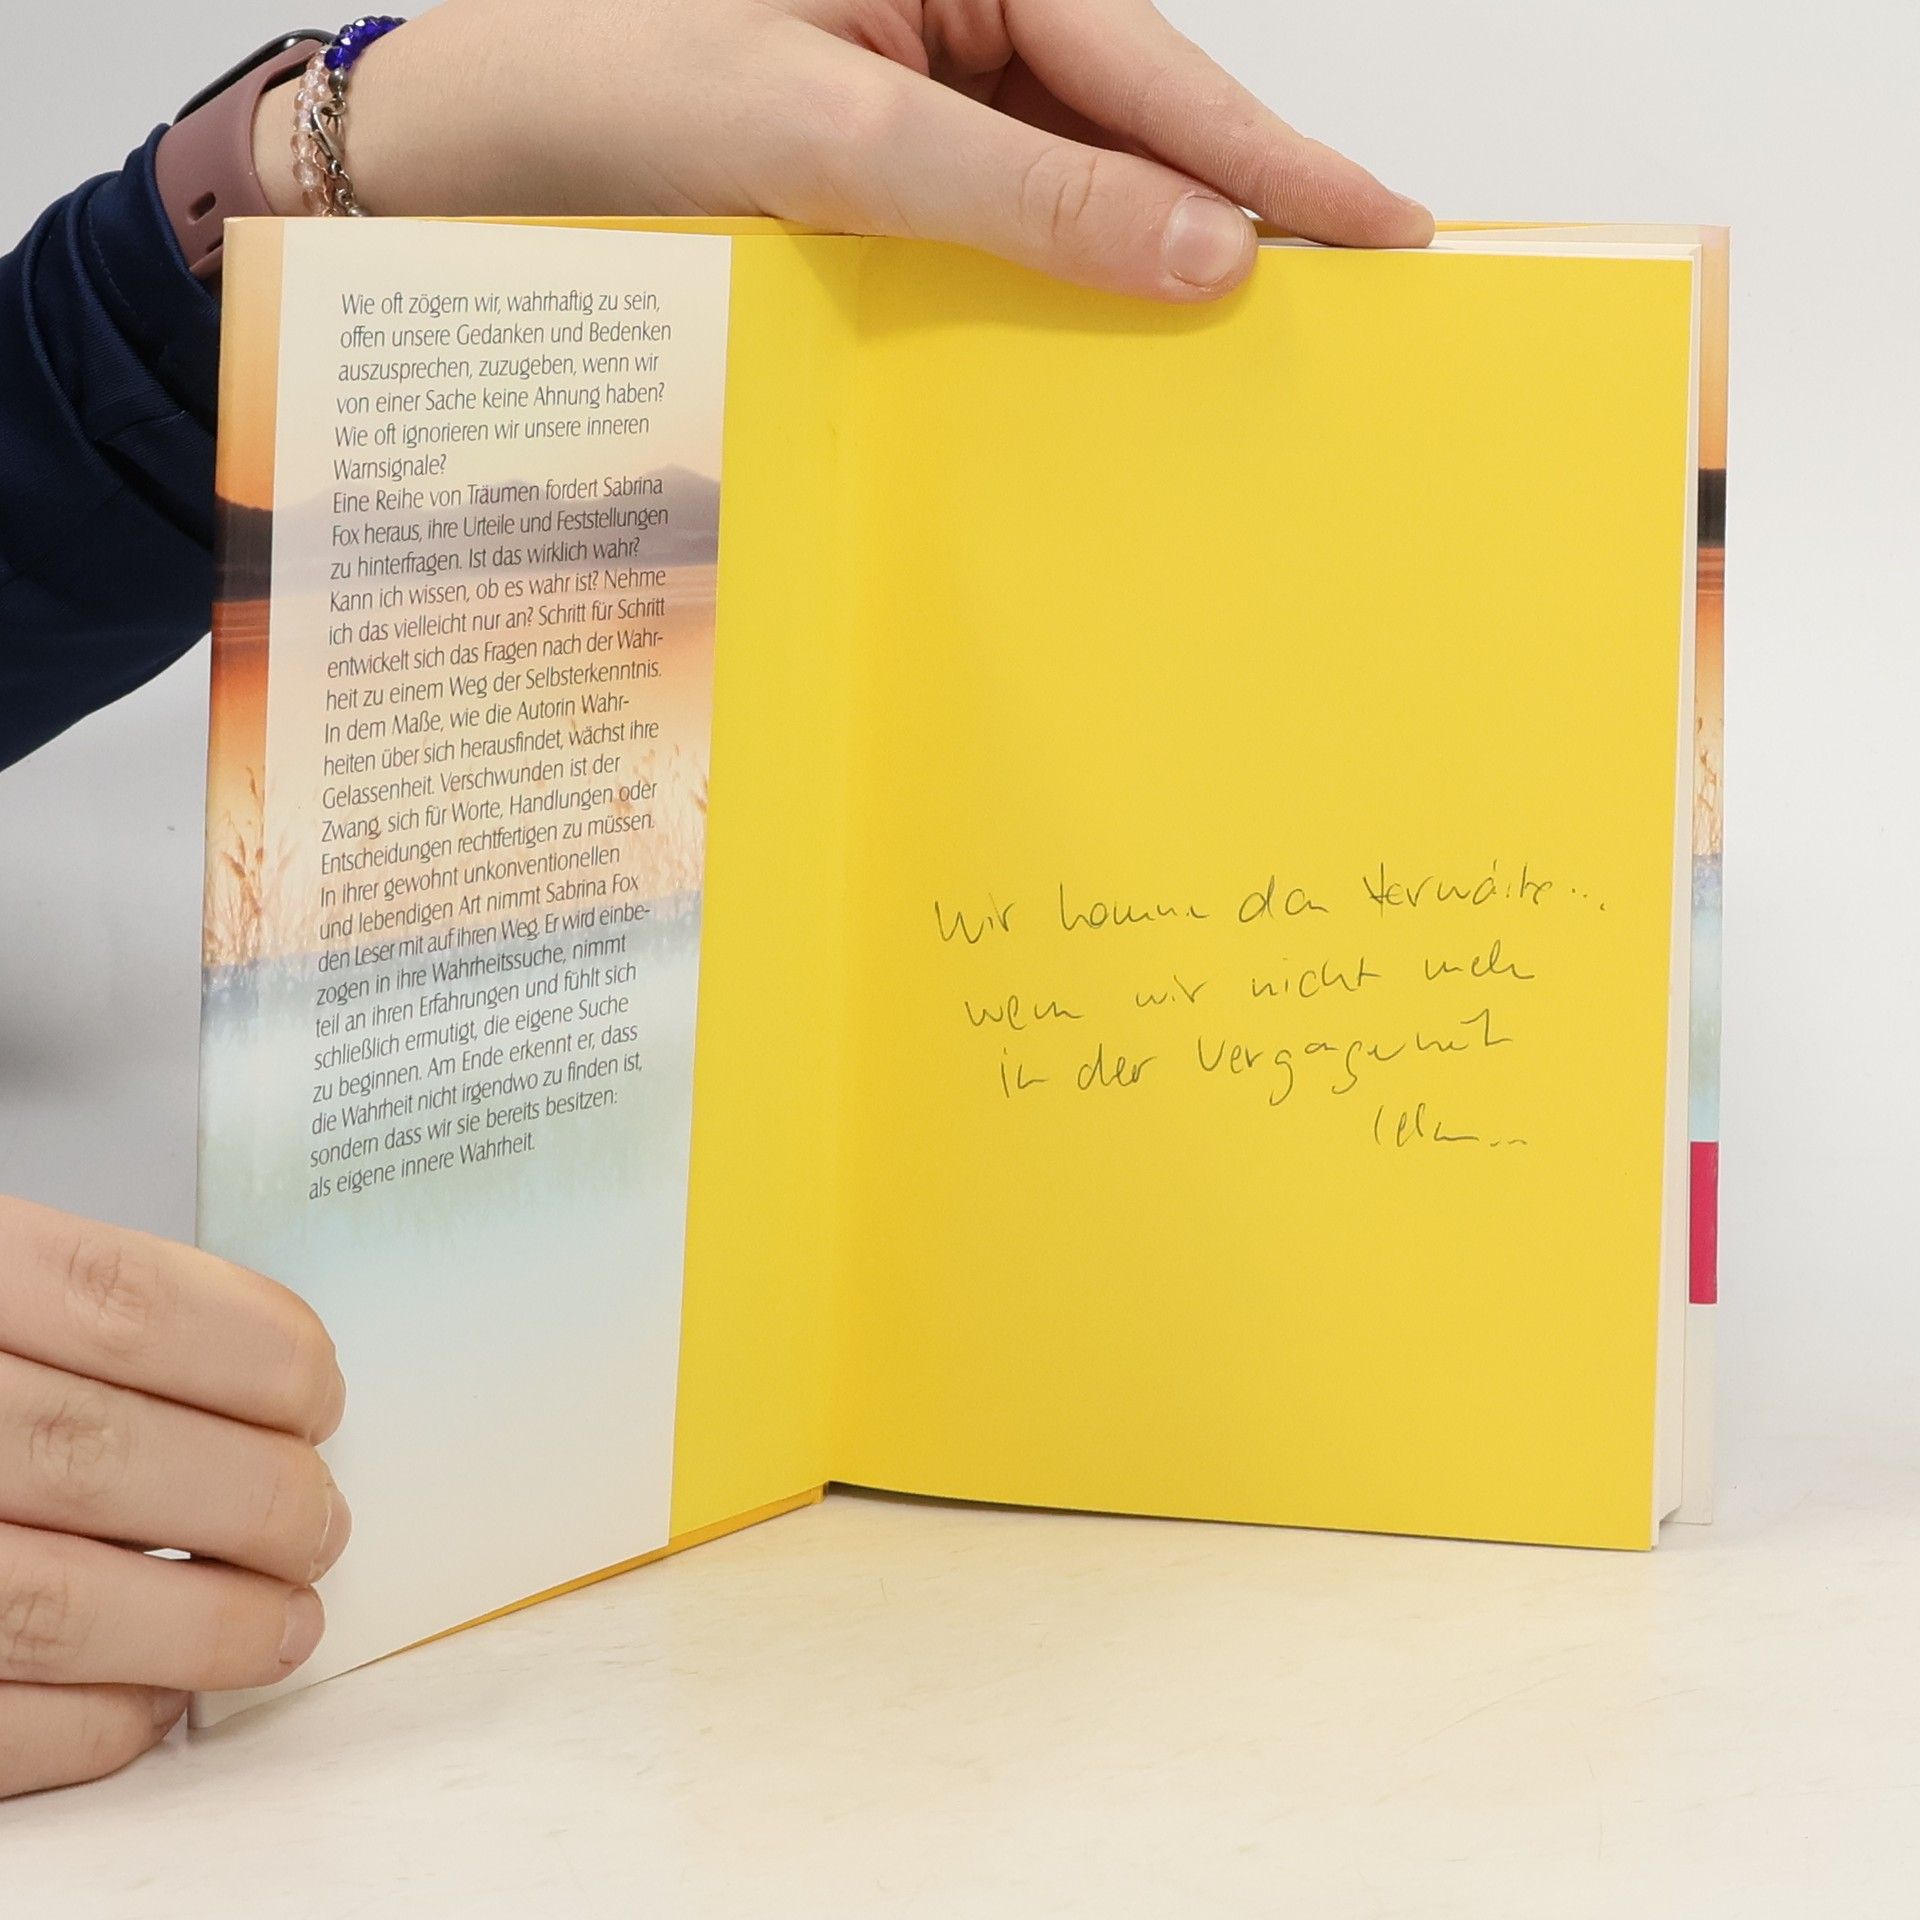 Wie oft zögern wir, wahrhaftig zu sein,
offen unsere Gedanken und Bedenken
auszusprechen, zuzugeben, wenn wir
von einer Sache keine Ahnung haben?
Wie oft ignorieren wir unsere inneren
Warnsignale?
Eine Reihe von Träumen fordert Sabrina
Fox heraus, ihre Urteile und Feststellungen
zu hinterfragen. Ist das wirklich wahr?
Kann ich wissen, ob es wahr ist? Nehme
ich das vielleicht nur an? Schritt für Schritt
entwickelt sich das Fragen nach der Wahr-
heit zu einem Weg der Selbsterkenntnis.
In dem Maße, wie die Autorin Wahr-
heiten über sich herausfindet, wächst ihre
Gelassenheit. Verschwunden ist der
Zwang, sich für Worte, Handlungen oder
Entscheidungen rechtfertigen zu müssen.
In ihrer gewohnt unkonventionellen
und lebendigen Art nimmt Sabrina Fox
den Leser mit auf ihren Weg. Er wird einbe-
zogen in ihre Wahrheitssuche, nimmt
teil an ihren Erfahrungen und fühlt sich
schließlich ermutigt, die eigene Suche
zu beginnen. Am Ende erkennt er, dass
die Wahrheit nicht irgendwo zu finden ist,
sondern dass wir sie bereits besitzen:
als eigene innere Wahrheit.
Wir kommen dan
wenn wir nicht mehr
in der Vergangenheit
leben...